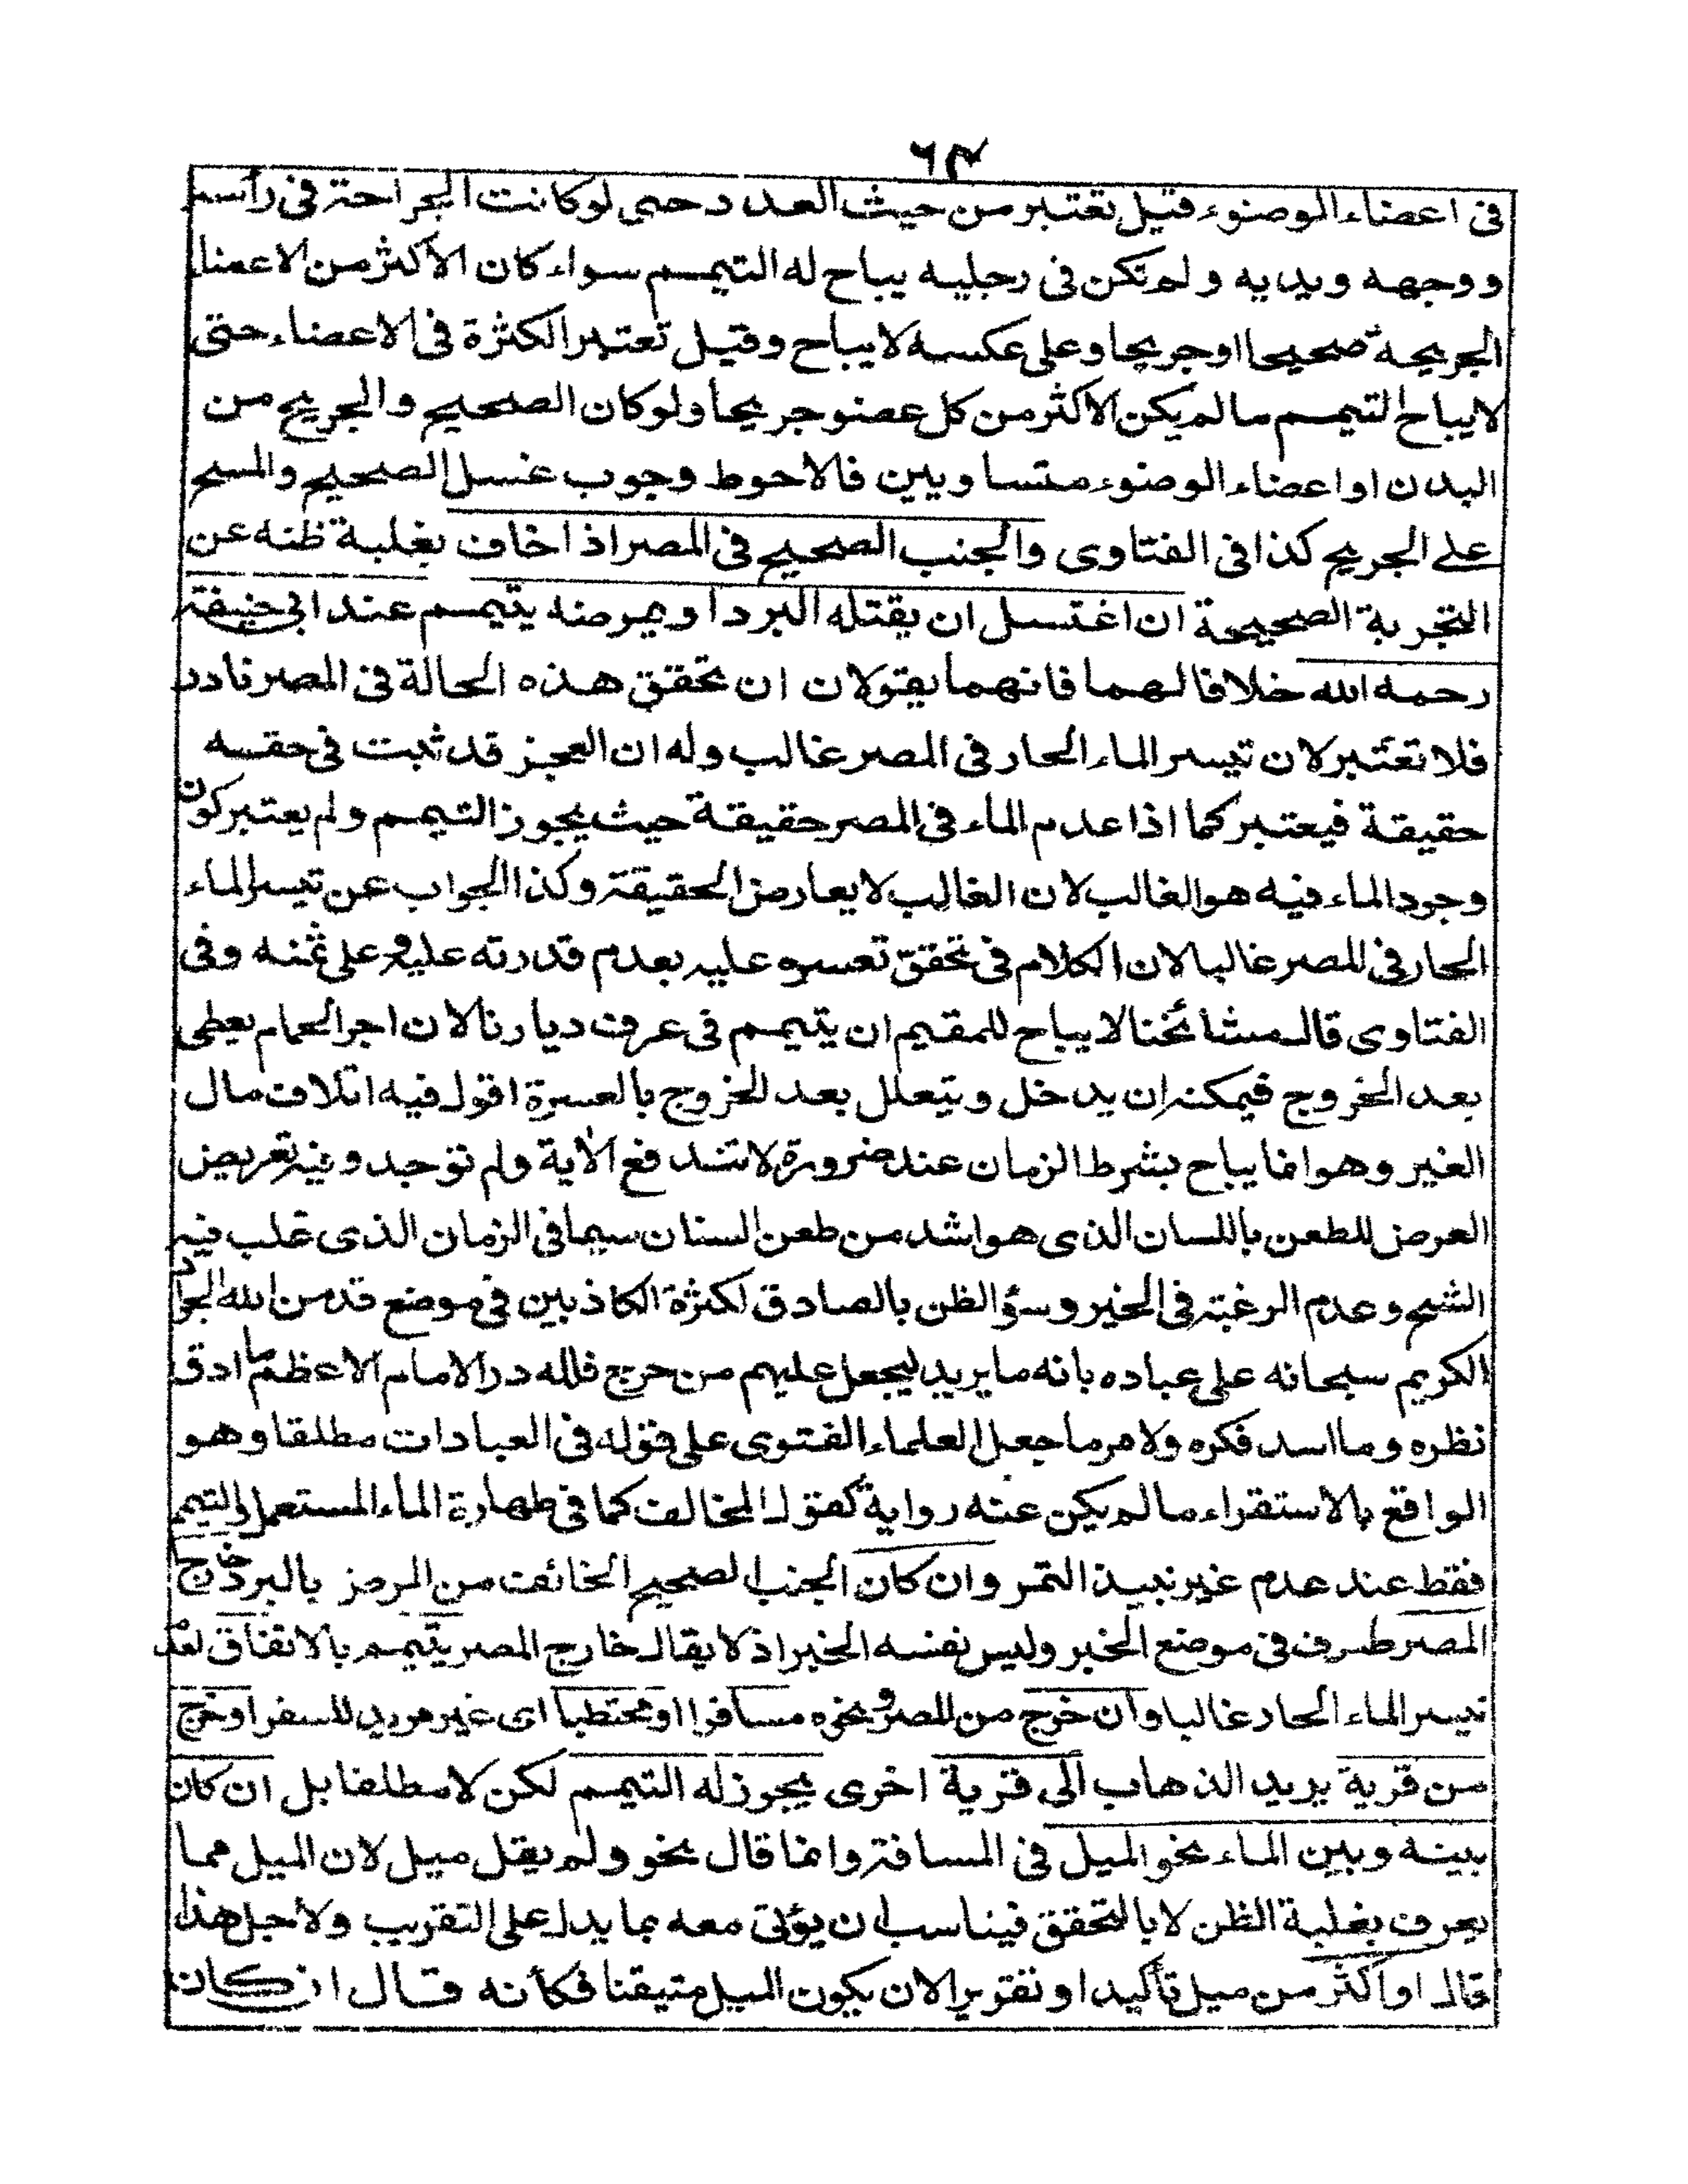 ٦٤
فى اعضاء الوضوء قيل تعتبر من حيث العدد حتى لو كانت الجراحة فى رأسه
ووجهه ويديه ولم تكن فى رجليه يباح له التيمم سواء كان الاكثر من الاعضاء
الجريحة صحيحا او جريحا وعلى عكسه لا يباح وقيل تعتبر الكثرة فى الاعضاء حتى
لا يباح التيمم ما لم يكن الاكثر من كل عضو جريحا ولو كان الصحيح والجريح من
البدن او اعضاء الوضوء متساويين فالاحوط وجوب غسل الصحيح والمسح
على الجريح كذا فى الفتاوى والجنب الصحيح فى المصر اذا خاف بغلبة ظنه عن
التجربة الصحيحة ان اغتسل ان يقتله البرد او يمرضه يتيمم عند ابى حنيفة
رحمه الله خلافا لهما فانهما يقولان ان تحقق هذه الحالة فى المصر نادر
فلا تعتبر لان تيسر الماء الحار فى المصر غالب وله ان العجز قد ثبت فى حقه
حقيقة فيعتبر كما اذا عدم الماء فى المصر حقيقة حيث يجوز التيمم ولم يعتبر كون
وجود الماء فيه هو الغالب لان الغالب لا يعارض الحقيقة وكذا الجواب عن تيسر الماء
الحار فى المصر غالبا لان الكلام فى تحقق تعسره عليه بعدم قدرته عليه وعلى ثمنه وفى
الفتاوى قال مشائخنا لا يباح للمقيم ان يتيمم فى عرف ديارنا لان اجر الحمام يعطى
بعد الخروج فيمكنه ان يدخل ويتعلل بعد الخروج بالعسرة اقول فيه اتلاف مال
الغير وهو انما يباح بشرط الزمان عند ضرورة لا تندفع الآية ولم توجد وفيه تعريض
العرض للطعن باللسان الذى هو اشد من طعن السنان سيما فى الزمان الذى غلب فيه
الشح وعدم الرغبة فى الخير وسؤ الظن بالصادق لكثرة الكاذبين فى موضع قد من الله الجواد
الكريم سبحانه على عباده بانه ما يريد ليجعل عليهم من حرج فلله در الامام الاعظم ما ادق
نظره وما اسد فكره ولامر ما جعل العلماء الفتوى على قوله فى العبادات مطلقا وهو
الواقع بالاستقراء ما لم يكن عنه رواية كقول المخالف كما فى طهارة الماء المستعمل والتيمم
فقط عند عدم غير نبيذ التمر وان كان الجنب الصحيح الخائف من المرض بالبرد خارج
المصر ظرف فى موضع الخبر وليس نفسه الخبر اذ لا يقال خارج المصر يتيمم بالاتفاق لعدم
تيسر الماء الحار غالبا وان خرج من المصر ونحوه مسافرا او محتطبا اى غير مريد للسفر او خرج
من قرية يريد الذهاب الى قرية اخرى يجوز له التيمم لكن لا مطلقا بل ان كان
بينه وبين الماء نحو الميل فى المسافة وانما قال نحو ولم يقل ميل لان الميل مما
يعرف بغلبة الظن لا بالتحقق فيناسب ان يؤتى معه بما يدل على التقريب ولاجل هذا
قال او اكثر من ميل تأكيدا وتقريرا لان يكون الميل متيقنا فكأنه قال ان كان